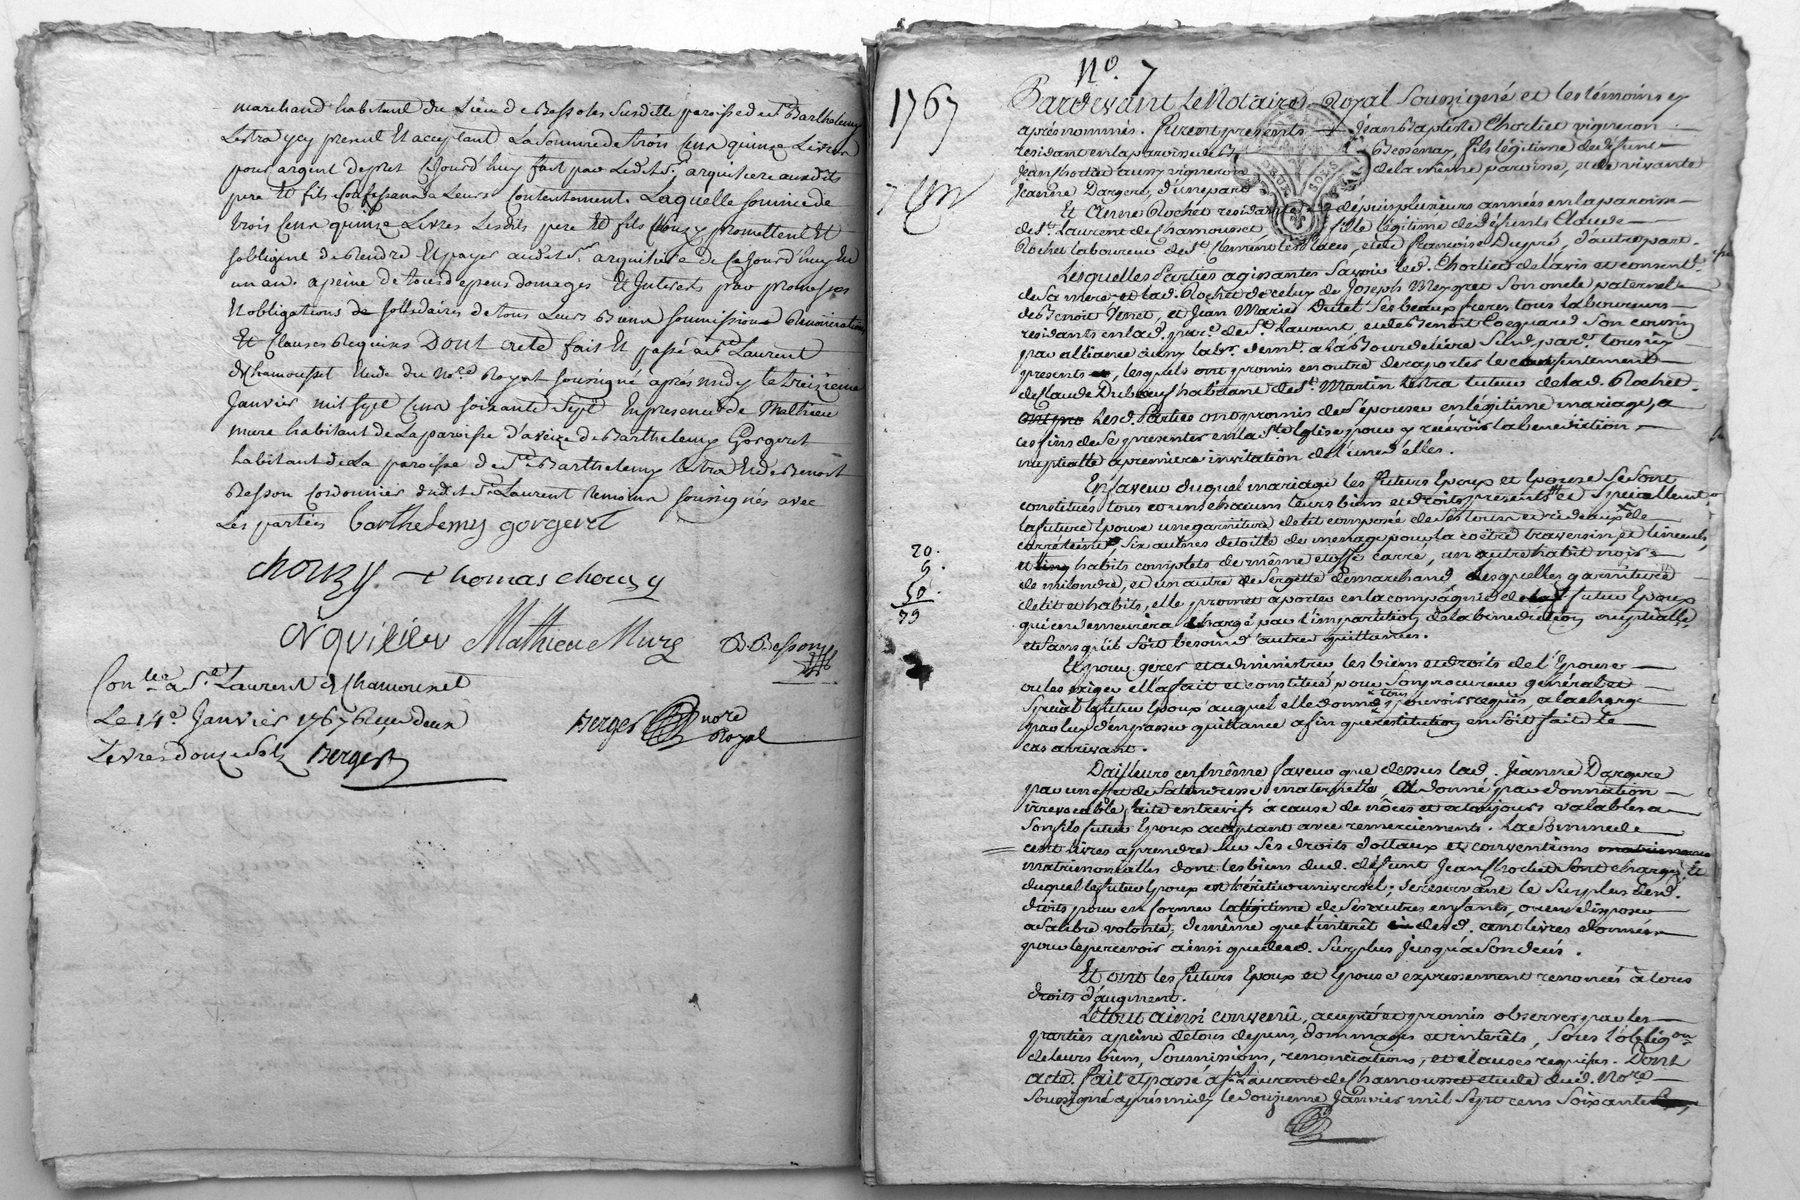 marchand habitant du Lieu de Bessoles susditte paroisse de St Barthelemy
Lestra ycy present Et acceptant La somme de trois Cent quinze Livres
pour argent de pret Cejourd'huy fait par Ledit Sr. arquiliere auxdits
pere Et fils Confessant a Leurs Contentement. Laquelle somme de
trois Cent quinze Livres Lesdits pere Et fils Chouzy promettent Et
sobligent de Rendre Et payer audit Sr. arquiliere de Cejourd'huy En
un an. a peine de tous depens domages Et Interets par promesses
Et obligations de sollidaires de tous Leurs Biens soumissions Renonciations
Et Clauses Requises DONT acte fait Et passé a St Laurent
de Chamousset Etude du No.re Royal soussigné aprés midy le treizieme
Janvier mil sept Cent soixante sept En presence de Mathieu
mure habitant de La paroisse d'aveize de Barthelemy Gorgeret
habitant de La paroisse de St Barthelemy Lestra Et de Benoit
Besson Cordonnier dudit St. Laurent temoins soussignés avec
Les parties barthelemy gorgeret
chouzy. thomas chouzy
Mathieu Mure B Besson
Con.lée a St. Laurent de Chamousset
Le 14e. Janvier 1767 Reçu deux
Livres douze sols Berger
Berger nore
Royal
No. 7
1767
Pardevant le Notaire Royal Soussigné et les témoins cy
aprés nommés. furent presents Jean Baptiste Chortiet vigneron
residant en la paroisse de Bessenay, fils légitime de défunt
Jean Chortiet aussy vigneron de la même paroisse, et de vivante
Jeanne Dargere, d'une part
Et Anne Rochet residante depuis plusieurs années en la paroisse
de St. Laurent de Chamousset fille légitime de défunts Claude
Rochet laboureur de St. Clement les places, et de françoise Dupré, d'autre part.
Lesquelles Parties agissantes Sávoir led. Chortiet de l'avis et consent.t
de Sa mere et lad. Rochet de celuy de Joseph Meygret Son oncle paternel
de Benoit Venet, et Jean Marie Dutel Ses beaux freres tous laboureurs
residants en lad. par.e de St. Laurent, et de Benoit Coequard Son cousin
par alliance aussy lab.r demt. a la Bourdeliere Susd. par.e tous icy
presents, lesquels ont promis en outre de raporter le consentement
de Claude Dubeuf habitant de St. Martin lestra tuteur de lad. Rochet.
Lesd. Parties ont promis de S'épouser en légitime mariage, a
ces fins de Se presenter en la Ste Eglise pour y recevoir la benediction
nuptialle a premiere invitation de l'une d'elles.
En faveur duquel mariage les futurs Epoux et Epouse Se Sont
constitués tous et uns chacuns leurs biens et droits presents et Specialement
la future Epouse une garniture de lit composée de Ses tours et rideaux de
Six aulnes de toille de menage pour la coetre traversin et linceuls,
habits complets de même etoffe carré, un autre habit noir
et un autre de Sergette de marchand, desquelles garniture
de lit et habits, elle promet aporter en la compagnie de futur Epoux
qui en demeurera chargé par l'impartition de la bénédiction nuptialle,
et Sans qu'il Soit besoin d'autre quittance.
20.
9.
50.
79
Et pour gerer et administrer les biens et droits de l'Epouse
ou les exiger elle a fait et constitué pour Son procureur général et
Special le futur Epoux auquel elle donne tous pouvoirs requis, a la charge
par luy d'en passer quittance afin que restitution en Soit faite le
cas arrivant.
D'ailleurs en même faveur que dessus lad. Jeanne Dargere
par un effet de Sa tendresse maternelle a donné par donnation
irrevocable faite entrevifs à cause de nôces et a toujours valable a
Son fils futur Epoux acceptant avec remerciements. La Somme de
cent livres a prendre Sur Ses droits dottaux et conventions
matrimonialles dont les biens dud. défunt Jean Chortiet Sont chargés, et
duquel le futur Epoux est héritier universel. Se reservant le Surplus desd.
droits pour en former la légitime de Ses autres enfants, ou en disposer
a Sa libre volonté, de même que l'interêt desd. cent livres donnés
pour le percevoir ainsi que led. Surplus jusqu'à Son decés.
Et ont les futurs Epoux et Epouse expressement renoncés à tous
droits d'augment.
Le tout ainsi convenû, accepté et promis observer par les
parties a peine de tous depens, dommages et interêts, Sous l'oblig.on
de leurs biens, Soumissions, renonciations, et clauses requises. Dont
acte. fait et passé a St. Laurent de Chamousset etude dud. No.re
Soussigné aprés midy le douzieme Janvier mil Sept cens Soixante